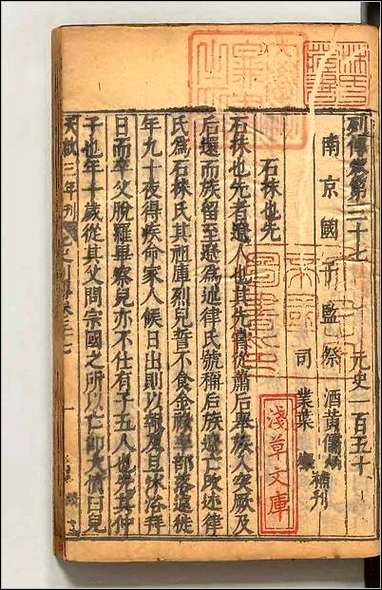 列傳卷第三十七
元史一百五十
南京國子監祭酒黃儒炳補刊
司業葉燦
石抹也先
石抹也先者遼人也其先嘗從蕭后舉族入突厥及
后還而族留至遼為述律氏號稱后族遼亡改述律
氏為石抹氏其祖庫烈兒誓不食金祿率部落遠徙
年九十夜得疾命家人候日出則以報及旦沐浴拜
日而卒父脫羅畢察兒亦不仕有子五人也先其仲
子也年十歲從其父問宗國之所以亡即大憤曰兒
天啟三年刊
元史列傳卷三十七
一
淺草文庫
林氏
藏書
日本
政府
圖書